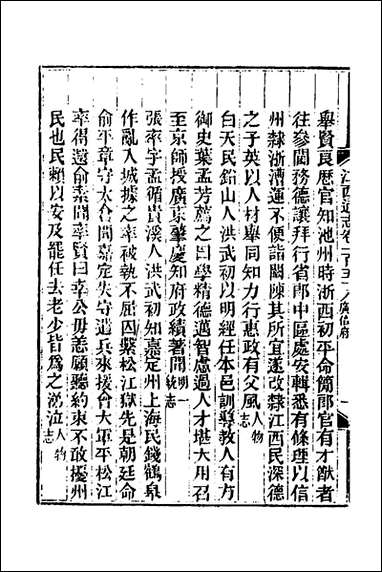 江西通志卷一百五十八 廣信府 一
舉賢良歷官知池州時浙西初平命簡郡官有才猷者
往參閫務德讓拜行省郎中區處安輯悉有條理以信
州隸浙漕運不便詣闕陳其所宜遂改隸江西民深德
之子英以人材舉同知力行惠政有父風人物志
白天民鉛山人洪武初以明經任本邑訓導教人有方
御史葉孟芳薦之曰學精德邁智慮過人才堪大用召
至京師授廣東肇慶知府政績著聞明一統志
張率字孟循貴溪人洪武初知嘉定州上海民錢鶴臯
作亂入城據之率被執不屈囚繫松江獄先是朝廷命
俞平章守太倉聞嘉定失守遣兵來援會大軍平松江
率得還俞素聞率賢曰幸公毋恙願聽約束不敢擾州
民也民賴以安及罷任去老少皆為之涕泣人物志